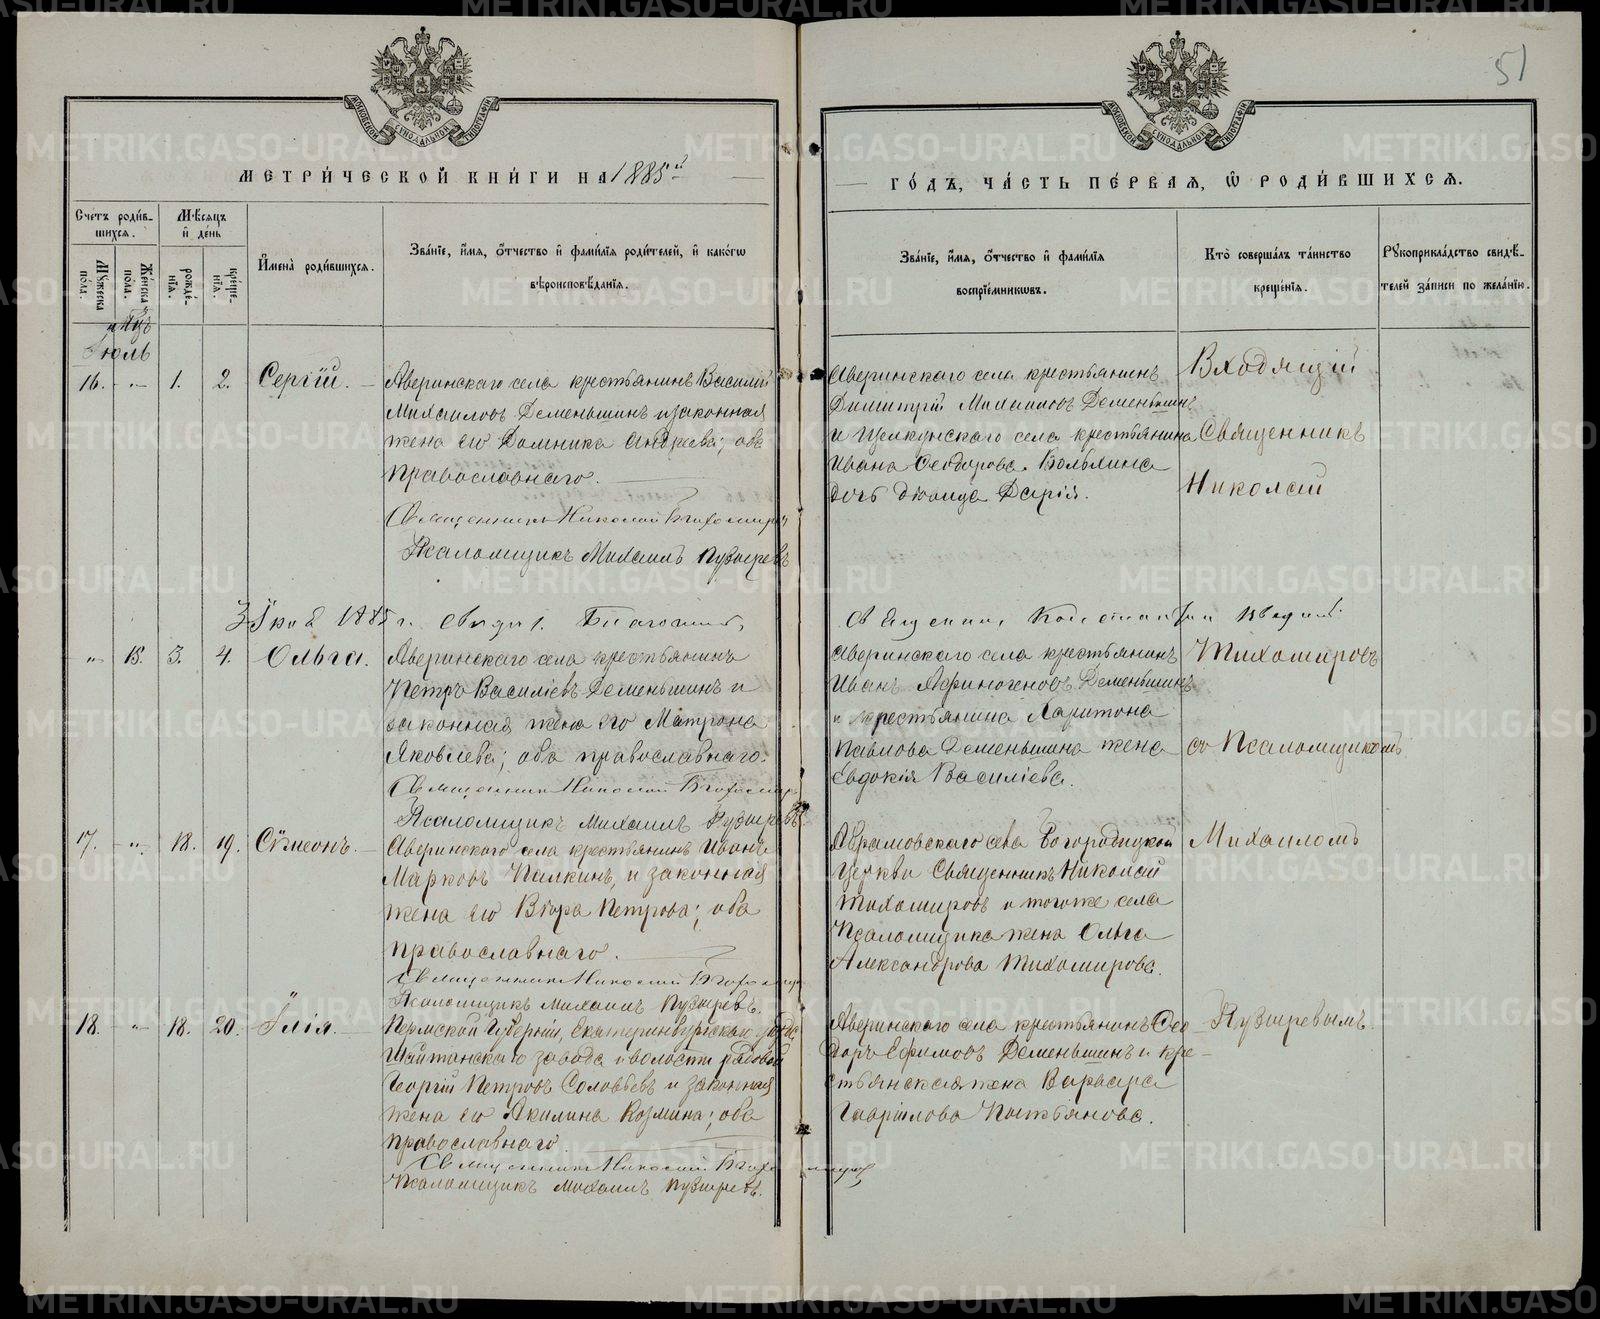 51
МЕТРИ́ЧЕСКОЙ КНИ́ГИ НА 1885й
ГО́ДЪ, ЧА́СТЬ ПЕ́РВАЯ, Ѡ РОДИ́ВШИХСЯ.
Сче́тъ роди́вшихся.
Мѣ́сяцъ и де́нь
Мꙋ́жеска по́ла.
Же́нска по́ла.
рожде́нїя.
креще́нїя.
И҆мена̀ роди́вшихся.
Зва́нїе, и҆́мя, ѻ҆́тчество и҆ фами́лїя роди́телей, и҆ како́гѡ вѣроисповѣ́данїя.
Зва́нїе, и҆́мя, ѻ҆́тчество и҆ фами́лїя воспрїе́мникѡвъ.
Кто̀ соверша́лъ та́инство креще́нїя.
Рꙋкоприкла́дство свидѣ́телей за́писи по жела́нїю.
Іюль
16. - „ - 1. 2. Сергій. -
Аверинскаго села крестьянинъ Василій
Михаиловъ Деменьшинъ и законная
жена его Домника Андреева; оба
православнаго.
Священникъ Николай Тихомировъ
Псаломщикъ Михаилъ Пузыревъ
Аверинскаго села крестьянинъ
Димитрій Михаиловъ Деменьшинъ
и Щелкунскаго села крестьянина
Ивана Ѳеодорова
дочь дѣвица Дарія.
Входящій
Священникъ
Николай
1885 г.
Священникъ
„ 15. 3. 4. Ольга.
Аверинскаго села крестьянинъ
Петръ Василіевъ Деменьшинъ и
законная жена его Матрона
Яковлева; оба православнаго.
Священникъ Николай Тихомировъ
Псаломщикъ Михаилъ Пузыревъ
Аверинскаго села крестьянинъ
Иванъ Афиногеновъ Деменьшинъ
и крестьянина Харитона
Павлова Деменьшина жена
Евдокія Василіева.
Тихомировъ
съ Псаломщикомъ
17. - „ - 18. 19. Сѵмеонъ. -
Аверинскаго села крестьянинъ Иванъ
Марковъ Пилкинъ, и законная
жена его Вѣра Петрова; оба
православнаго.
Священникъ Николай Тихомировъ
Псаломщикъ Михаилъ Пузыревъ.
Абрамовскаго села Богородицкой
церкви Священникъ Николай
Тихомировъ и тогоже села
Псаломщика жена Ольга
Александрова Тихомирова.
Михаиломъ
18. - „ - 18. 20. Илія. -
Пермской Губерніи, Екатеринбургскаго уѣзда,
Шайтанскаго завода и волости рядовой
Георгій Петровъ Соловьевъ и законная
жена его Акилина Козмина; оба
православнаго.
Священникъ Николай Тихомировъ
Псаломщикъ Михаилъ Пузыревъ.
Аверинскаго села крестьянинъ Ѳео-
доръ Ефимовъ Деменьшинъ и кре-
стьянская жена Варвара
Гавріилова
Пузыревымъ.
METRIKI.GASO-URAL.RU